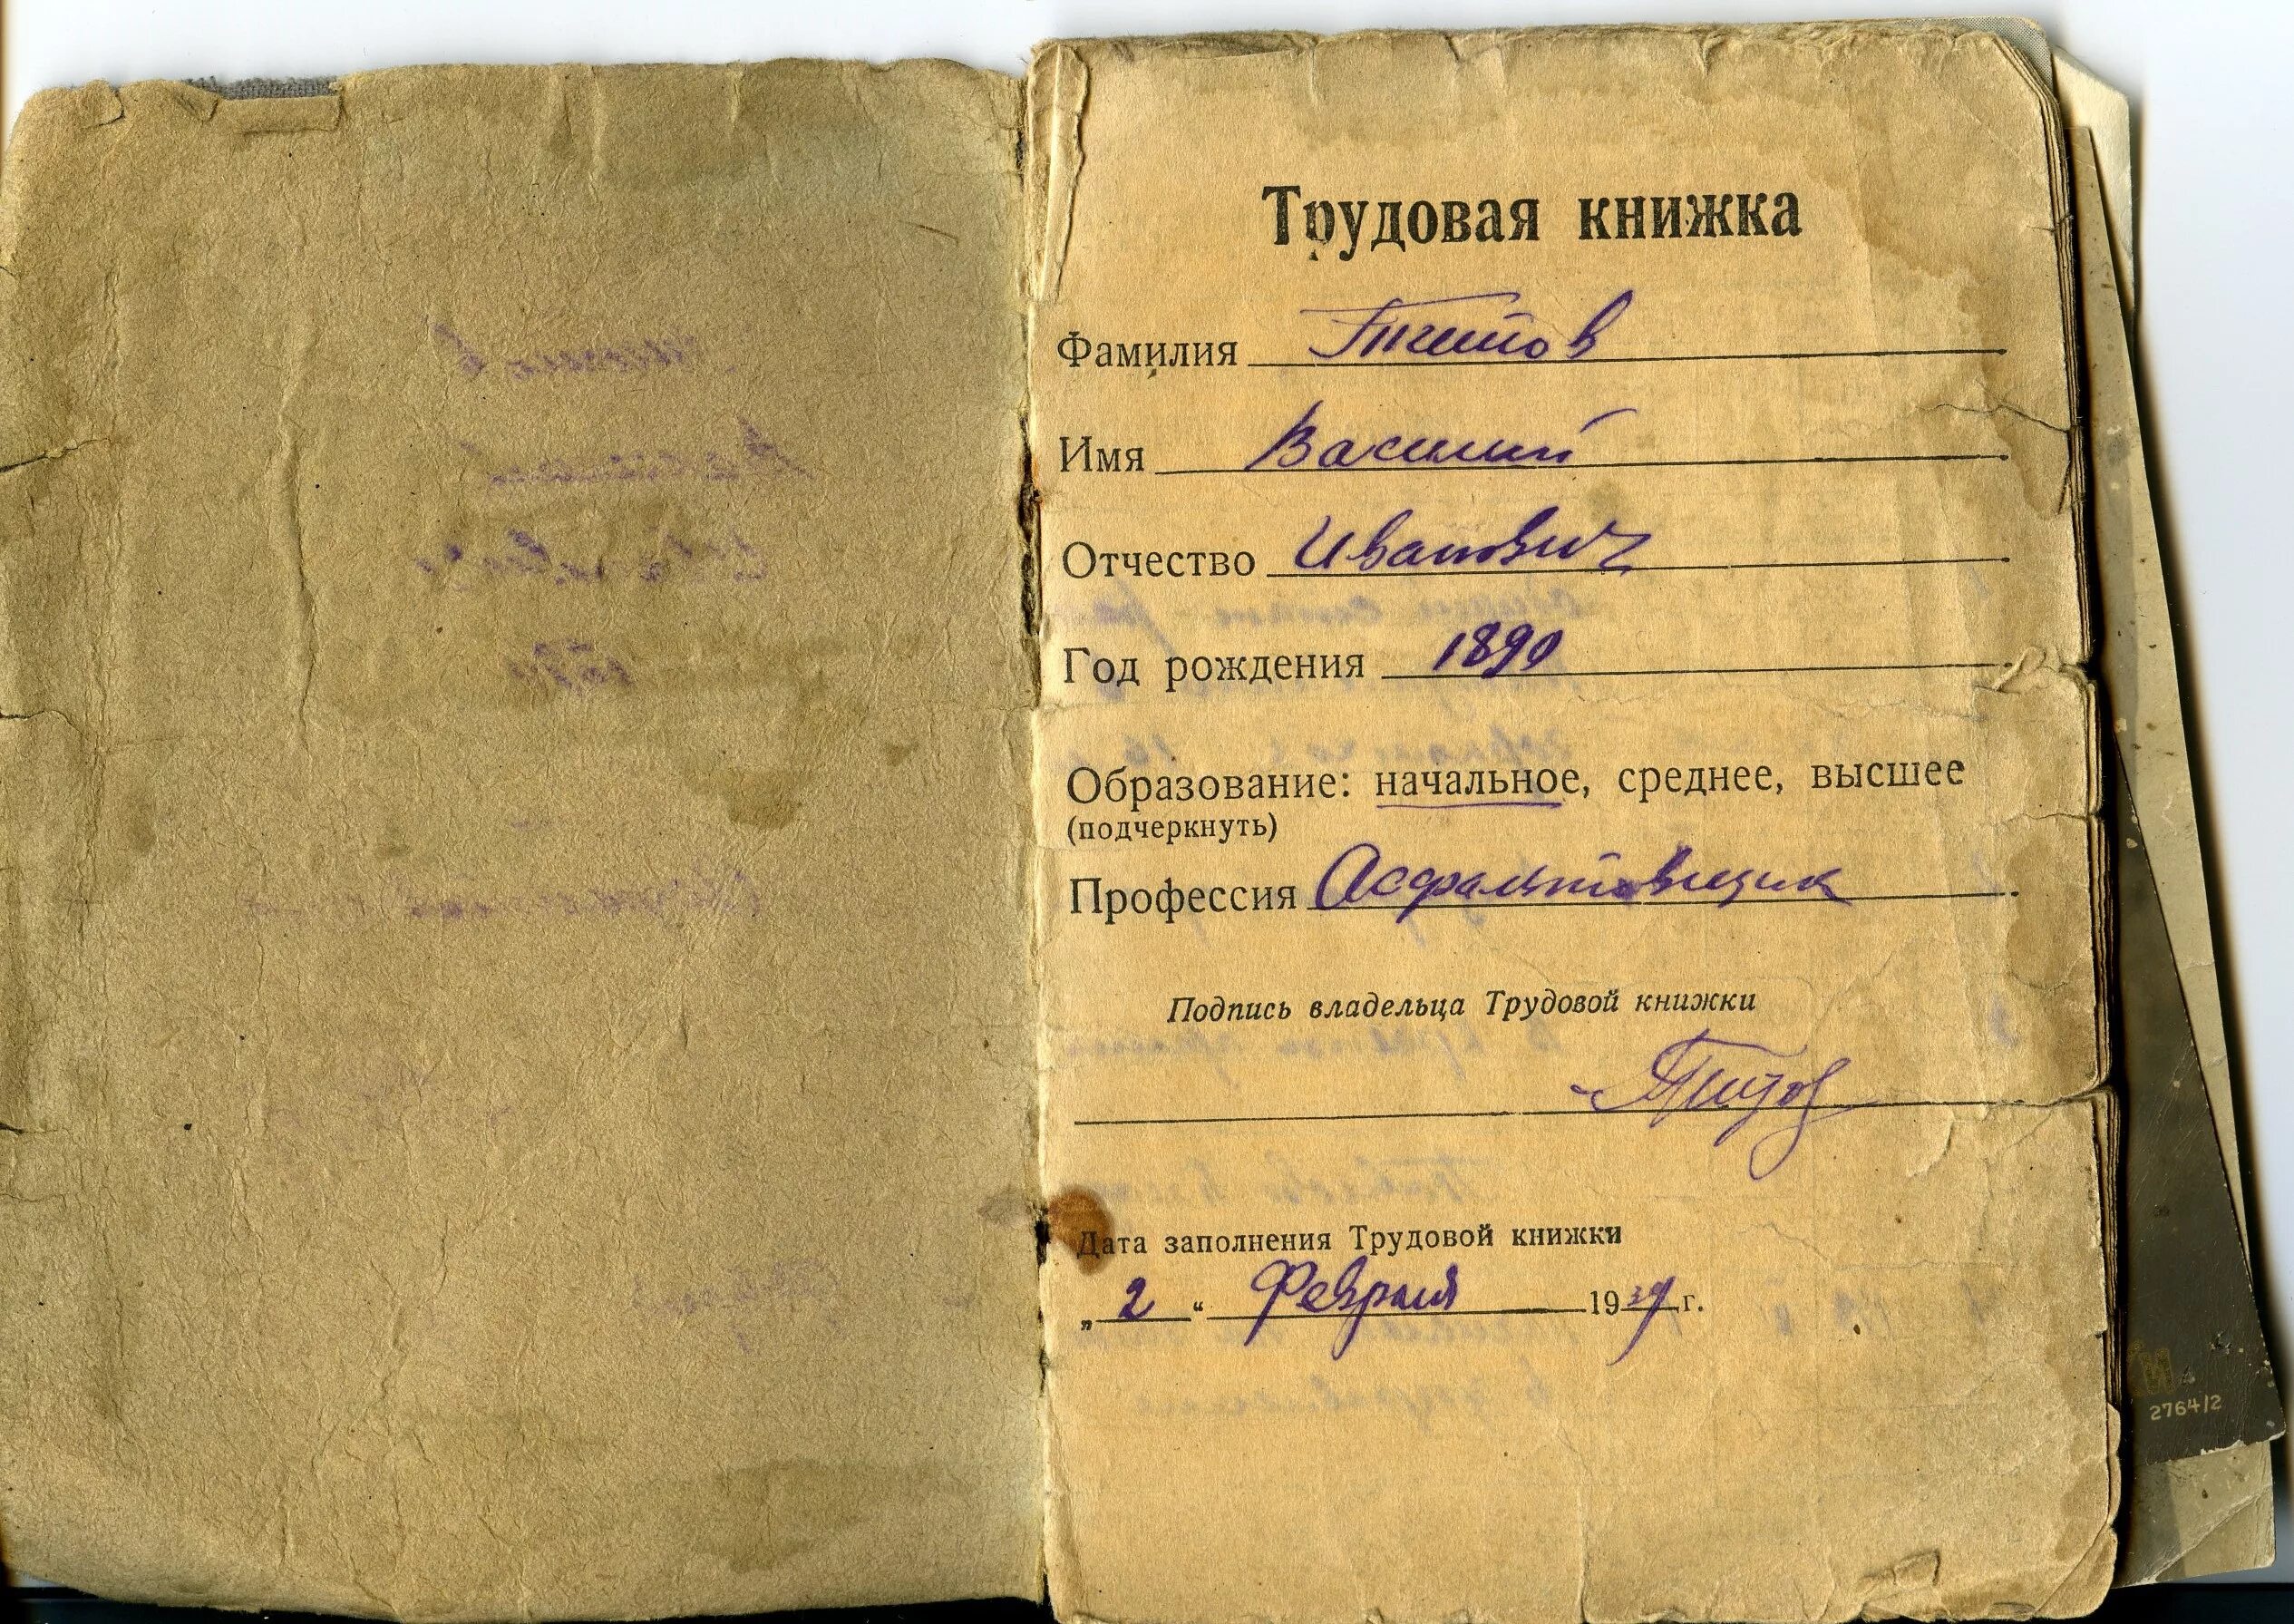 Трудовая книжка
Фамилия Титов
Имя Василий
Отчество Иванович
Год рождения 1890
Образование: начальное, среднее, высшее
(подчеркнуть)
Профессия Асфальтовщик
Подпись владельца Трудовой книжки
Титов
Дата заполнения Трудовой книжки
„ 2 “ Февраля 1939 г.
2764/2